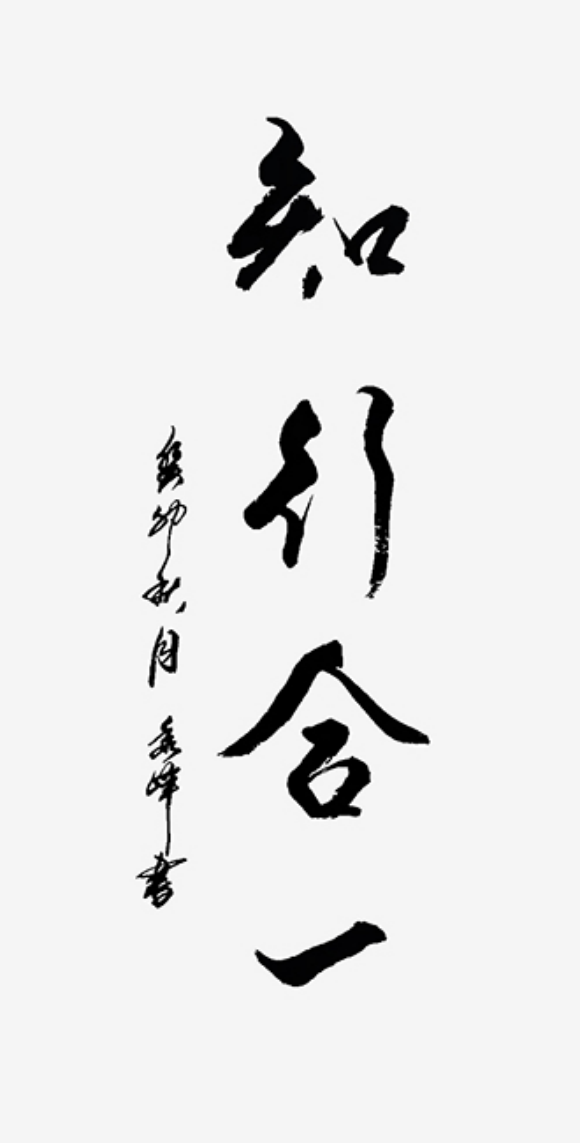 知行合一
癸卯秋月 峰书